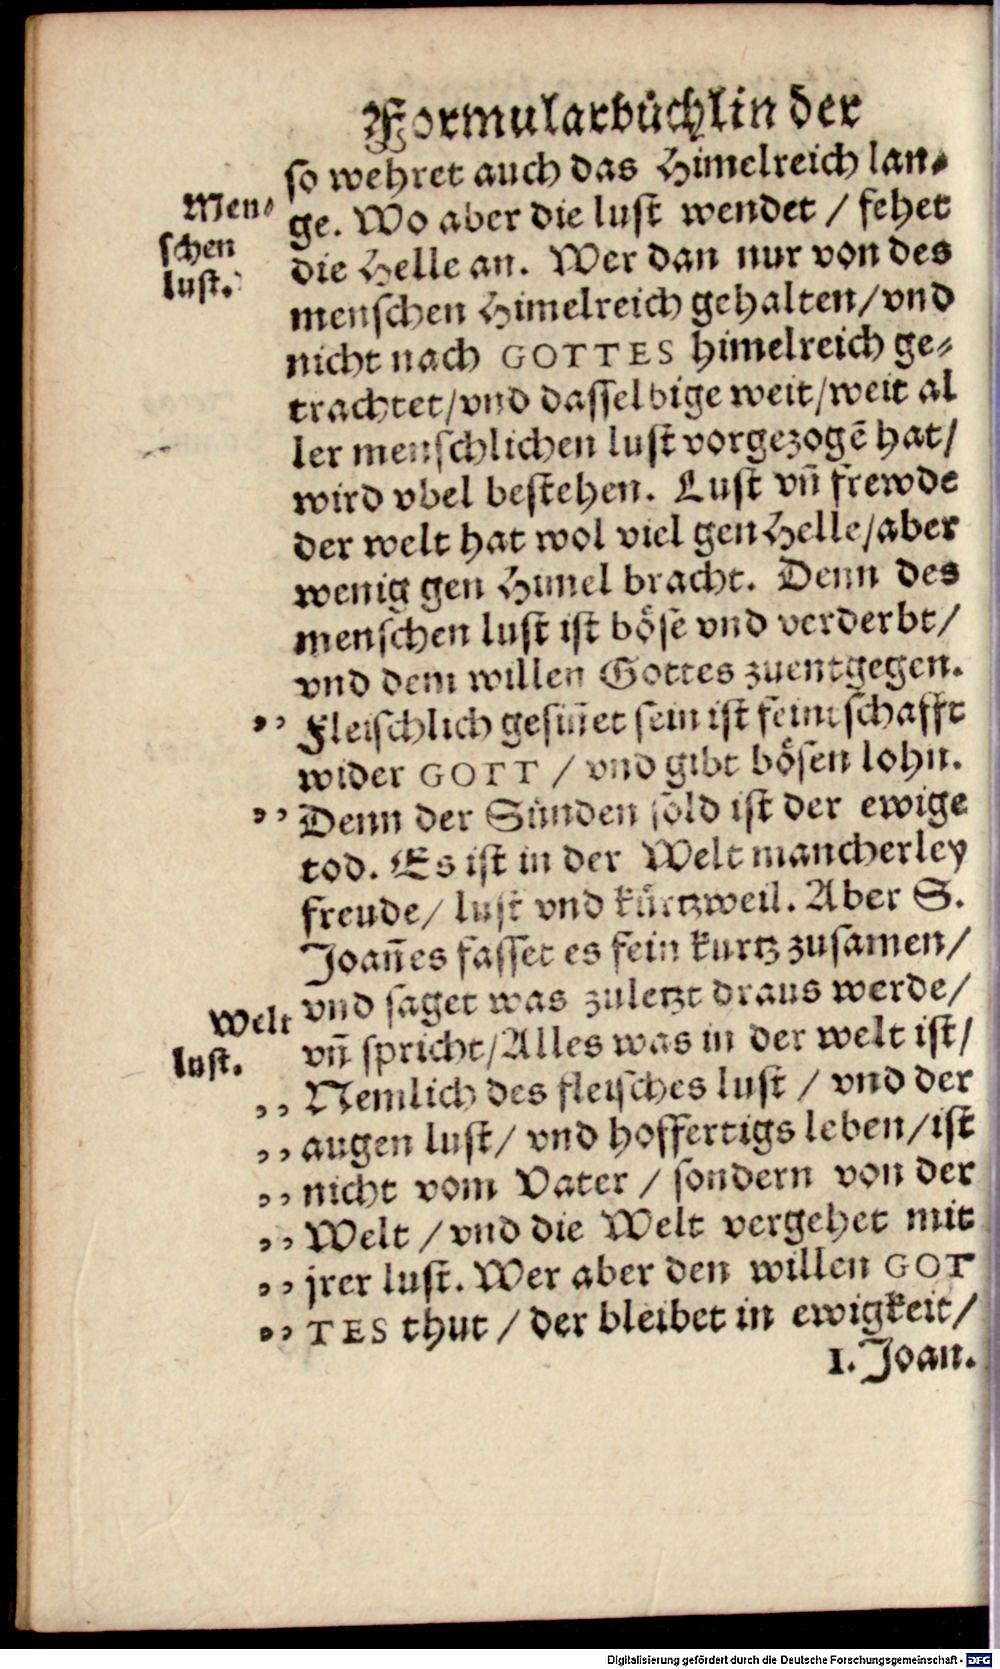 Formularbüchlin der
so wehret auch das Himelreich lan-
Men-
ge. Wo aber die lust wendet / fehet
schen
die Helle an. Wer dan nur von des
lust.
menschen Himelreich gehalten/vnd
nicht nach GOTTES himelreich ge-
trachtet/vnd dasselbige weit/weit al
ler menschlichen lust vorgezogē hat/
wird vbel bestehen. Lust vn̄ frewde
der welt hat wol viel gen Helle/aber
wenig gen Himel bracht. Denn des
menschen lust ist böse vnd verderbt/
vnd dem willen Gottes zuentgegen.
,, Fleischlich gesiñet sein ist feintschafft
wider GOTT / vnd gibt bösen lohn.
,, Denn der Sünden sold ist der ewige
tod. Es ist in der Welt mancherley
freude/ lust vnd kürtzweil. Aber S.
Joañes fasset es fein kurtz zusamen/
vnd saget was zuletzt draus werde/
Welt
vn̄ spricht/Alles was in der welt ist/
lust.
,, Nemlich des fleisches lust / vnd der
,, augen lust/ vnd hoffertigs leben/ist
,, nicht vom Vater / sondern von der
,, Welt / vnd die Welt vergehet mit
,, jrer lust. Wer aber den willen GOT
,, TES thut / der bleibet in ewigkeit/
1. Joan.
Digitalisierung gefördert durch die Deutsche Forschungsgemeinschaft - DFG